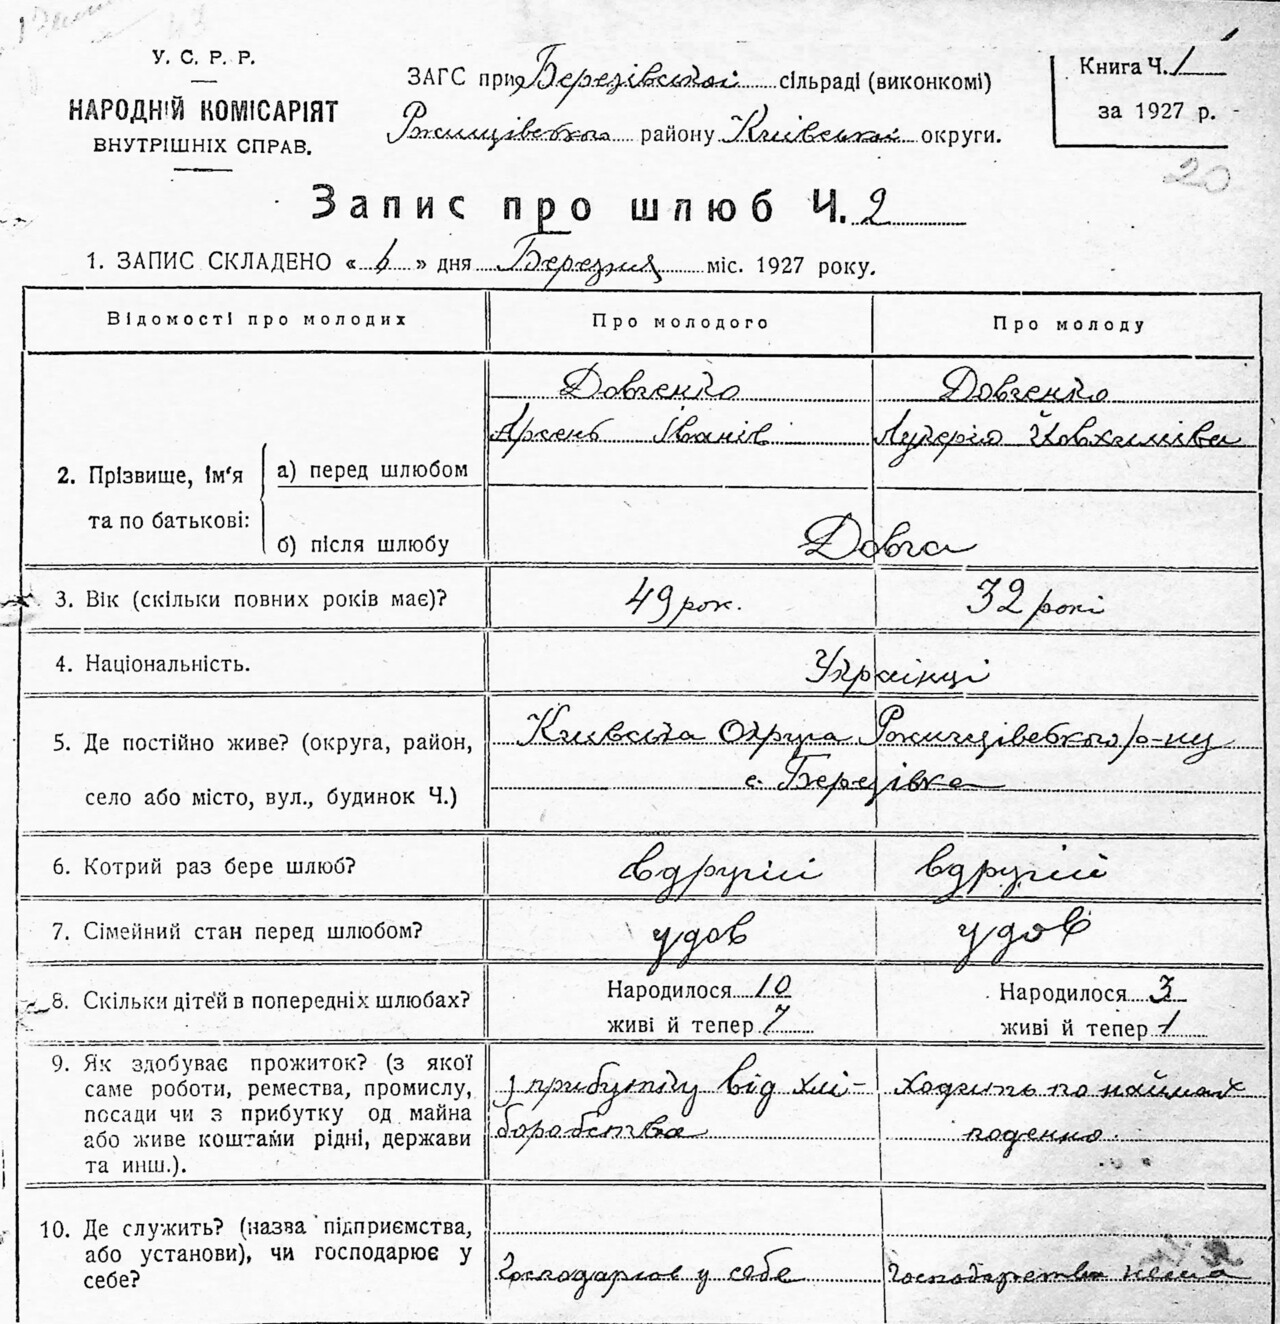 У. С. Р. Р.
НАРОДНІЙ КОМІСАРІЯТ
ВНУТРІШНІХ СПРАВ.
ЗАГС при Березівській сільраді (виконкомі)
Ржищівського району Київської округи.
Книга Ч. 1
за 1927 р.
20
Запис про шлюб Ч. 2
1. ЗАПИС СКЛАДЕНО « 6 » дня Березня міс. 1927 року.
Відомості про молодих
Про молодого
Про молоду
2. Прізвище, ім‘я та по батькові:
а) перед шлюбом
Довченко
Арсень Іванів
Довченко
Лукерія Йовхимівна
б) після шлюбу
Довча
3. Вік (скільки повних років має)?
49 рок.
32 рокі
4. Національність.
Українці
5. Де постійно живе? (округа, район,
село або місто, вул., будинок Ч.)
Київська Округа Ржищівського р-ну
с. Березівка
6. Котрий раз бере шлюб?
вдругий
вдругий
7. Сімейний стан перед шлюбом?
удов
удов
8. Скільки дітей в попередніх шлюбах?
Народилося 10
живі й тепер 7
Народилося 3
живі й тепер 1
9. Як здобуває прожиток? (з якої
саме роботи, ремества, промислу,
посади чи з прибутку од майна
або живе коштами рідні, держави
та инш.).
з прибутку від хлі-
боробства
ходить по наймах
поденно.
10. Де служить? (назва підприємства,
або установи), чи господарює у
себе?
Господарює у себе
Господарства нема